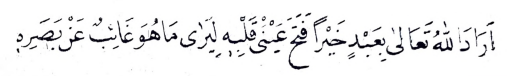 اَرَادَ اللهُ تَعَالٰى بِعَبْدٍ خَيْرًا فَتَحَ عَيْنَيْ قَلْبِهٖ لِيَرٰى مَا هُوَ غَائِبٌ عَنْ بَصَرِهٖ